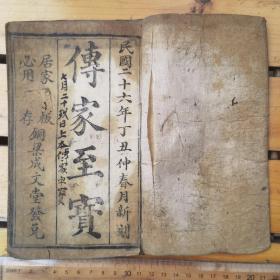 民國二十六年丁丑仲春月新刻
傳家至寶
七月二十
日上
居家必用
板存
銅梁成文堂發兌